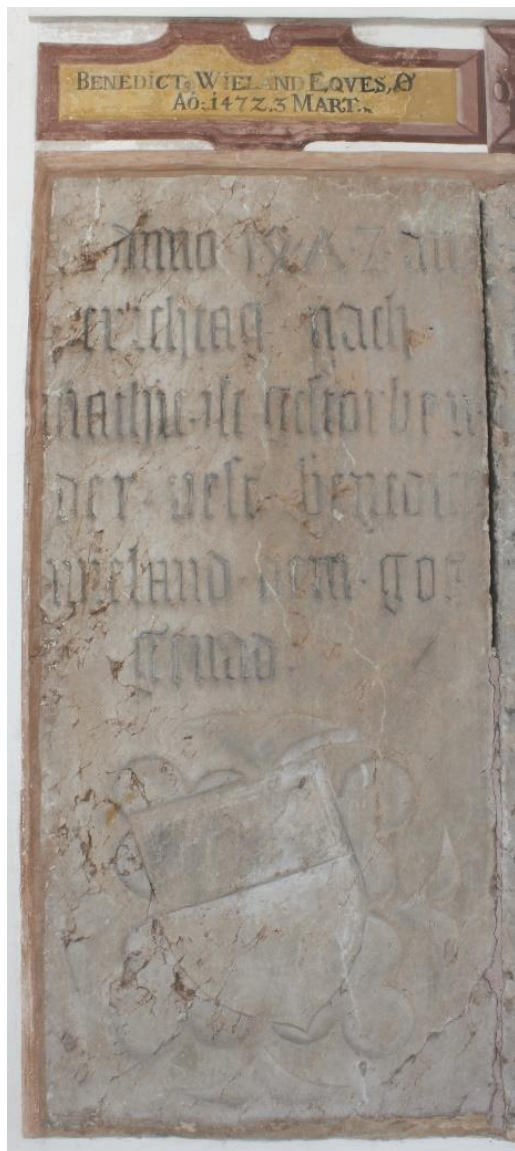 BENEDICTꝰ WIELAND EQVES, Ꝋ
Aō: 1472. 3 MART.
Anno 14·A·Z· am
erichtag· nach
mathie·ist·gestorben
der·vest benedict
wieland·dem·got
gnad·